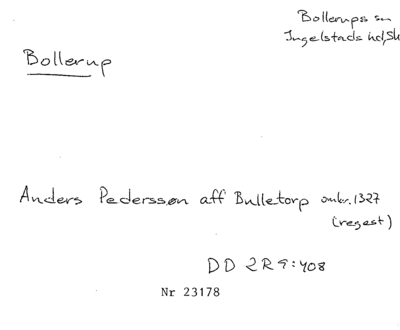 Bollerups sn
Ingelstads hd, Sk
Bollerup
Anders Pederssøn aff Bulletorp omkr. 1327
(regest)
DD 2R 9:408
Nr 23178